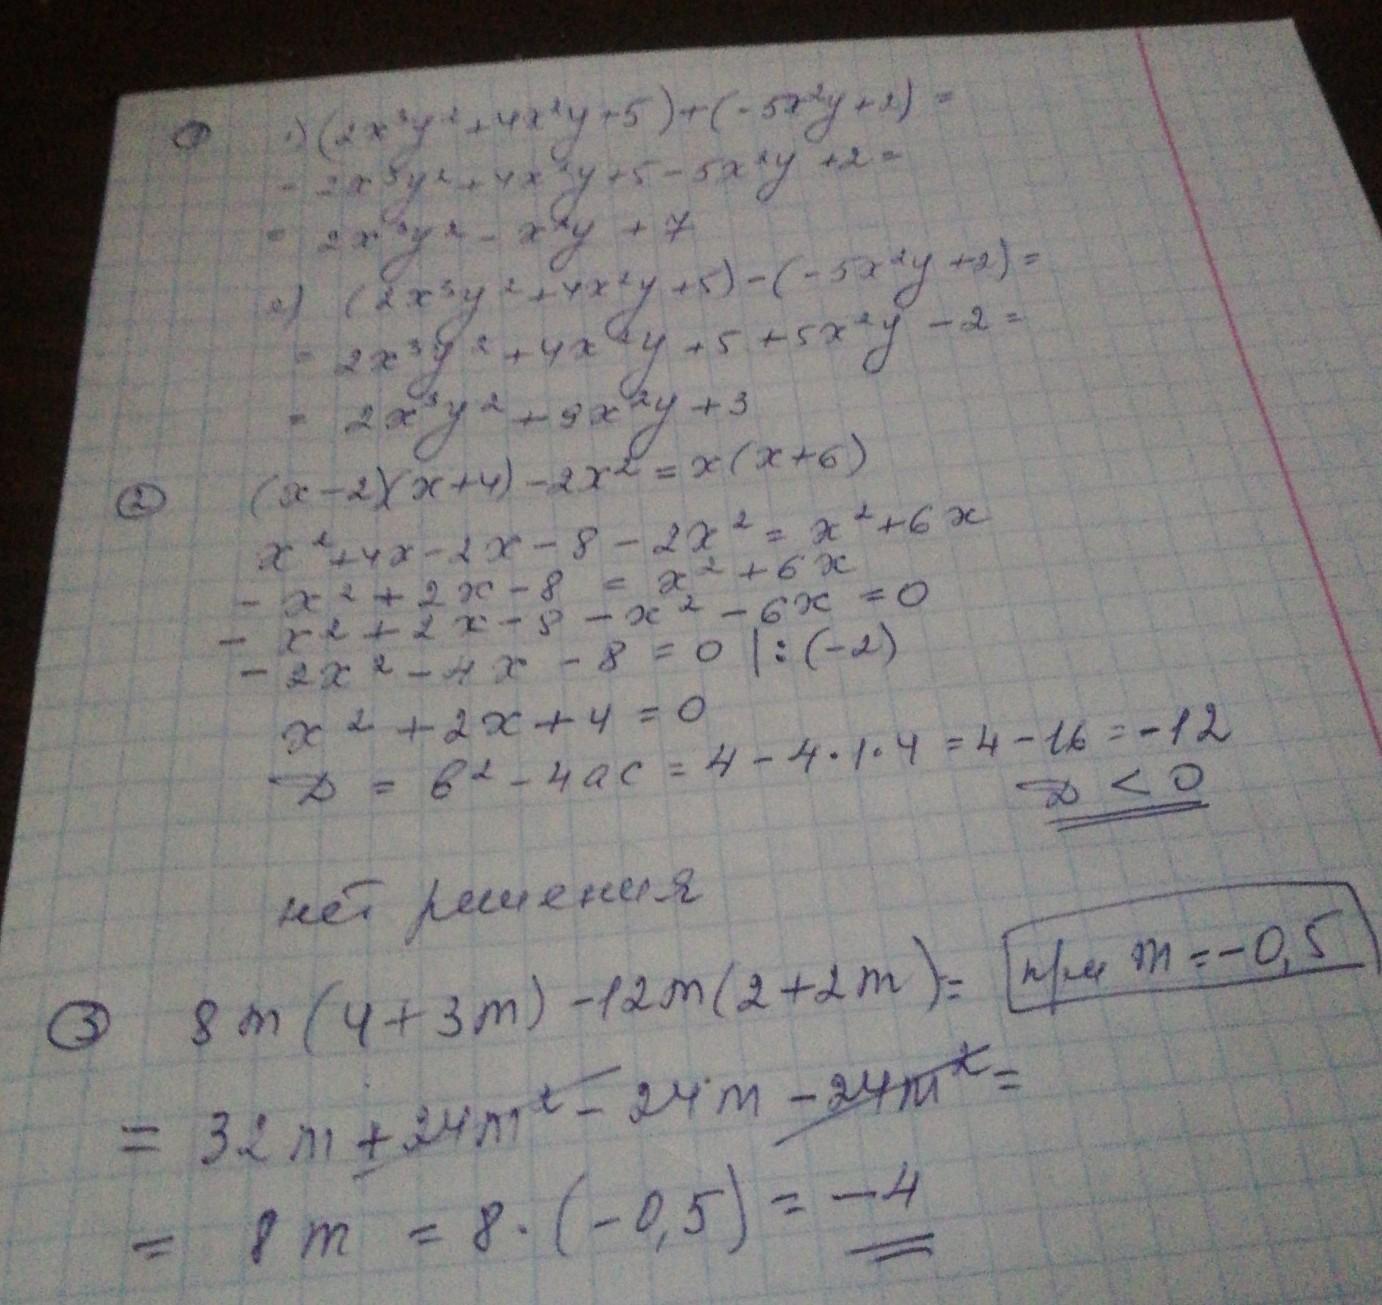 ① 1) (2x³y² + 4x²y + 5) + (-5x²y + 2) =
= 2x³y² + 4x²y + 5 - 5x²y + 2 =
= 2x³y² - x²y + 7
2) (2x³y² + 4x²y + 5) - (-5x²y + 2) =
= 2x³y² + 4x²y + 5 + 5x²y - 2 =
= 2x³y² + 9x²y + 3
② (x - 2)(x + 4) - 2x² = x(x + 6)
x² + 4x - 2x - 8 - 2x² = x² + 6x
- x² + 2x - 8 = x² + 6x
- x² + 2x - 8 - x² - 6x = 0
- 2x² - 4x - 8 = 0 | : (-2)
x² + 2x + 4 = 0
D = b² - 4ac = 4 - 4·1·4 = 4 - 16 = -12
D < 0
нет решения
③ 8m(4 + 3m) - 12m(2 + 2m) = при m = -0,5
= 32m + 24m² - 24m - 24m² =
= 8m = 8·(-0,5) = -4